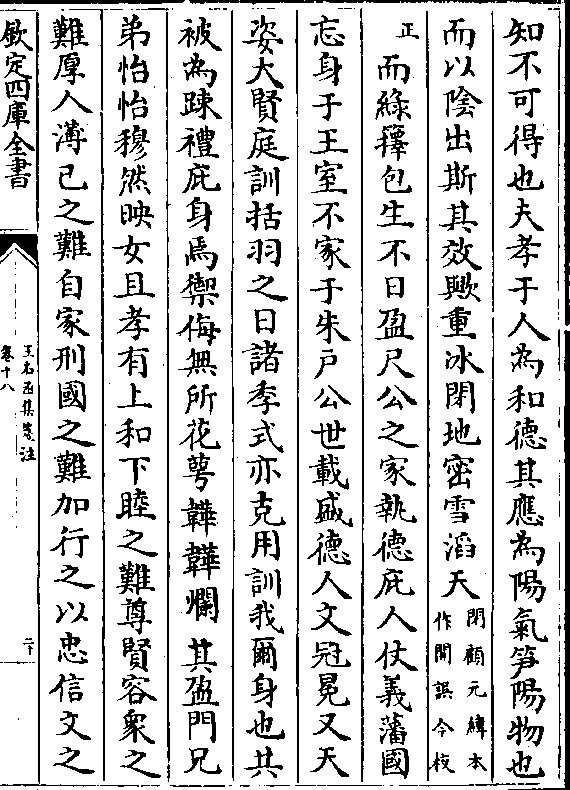 知不可得也夫孝于人為和德其應為陽氣笋陽物也
而以陰出斯其效歟重冰閉地密雪滔天閉顧元緯本作開誤今校
正而綠籜包生不日盈尺公之家執德庇人仗義藩國
忘身于王室不家于朱戸公世載盛德人文冠冕又天
姿大賢庭訓括羽之日諸季式亦克用訓我爾身也共
被為踈禮庇身焉禦侮無所花萼韡韡爛其盈門兄
弟怡怡穆然映女且孝有上和下睦之難尊賢容衆之
難厚人薄己之難自家刑國之難加行之以忠信文之
欽定四庫全書
王右丞集箋注
卷十八